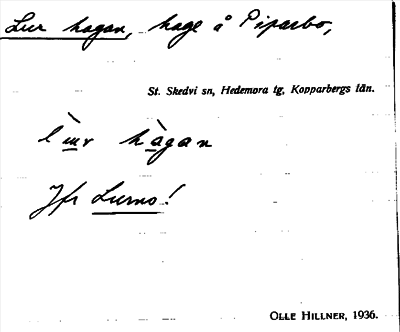 Lur hagan, hage å Piparbo,
St. Skedvi sn, Hedemora tg, Kopparbergs län.
l̀ɯr hàgan
Jfr Lurno!
OLLE HILLNER, 1936.